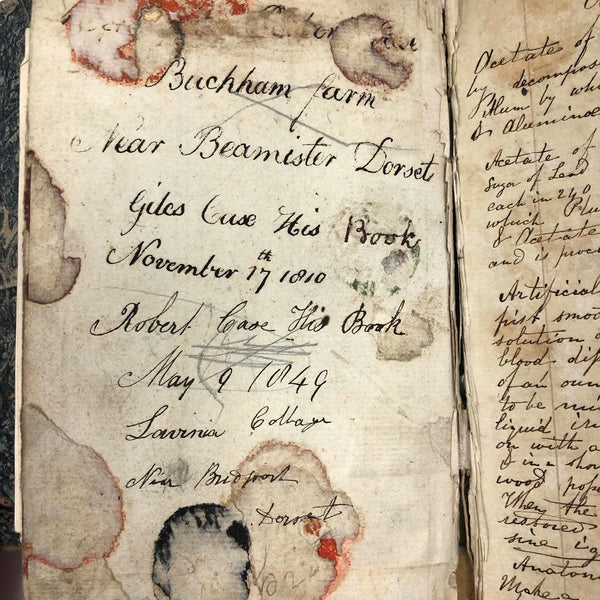 Buchham farm
Near Beamister Dorset
Giles Case His Book
November 17th 1810
Robert Case His Book
May 9 1849
Lavinia Cottage
Near Bridport
Dorset
Acetate of
by decompos
by whi
Acetate of
Sugar of Lead
each in 240
which
& Acetate
and is
Artificial
solution o
blood
of an oun
to be
liquid
on with a
wood
When the
restored
Make a